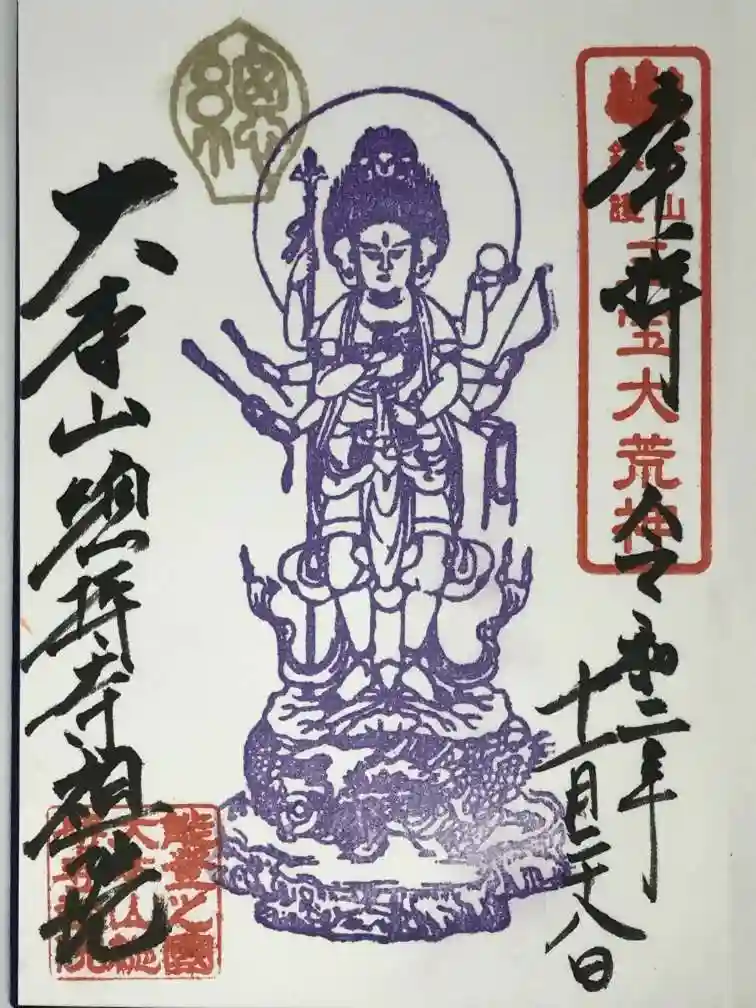 奉拝
鎮護
三宝大荒神
令和二年
十一月二十八日
總
大本山總持寺祖院
能登之國
大本山總
持寺祖院